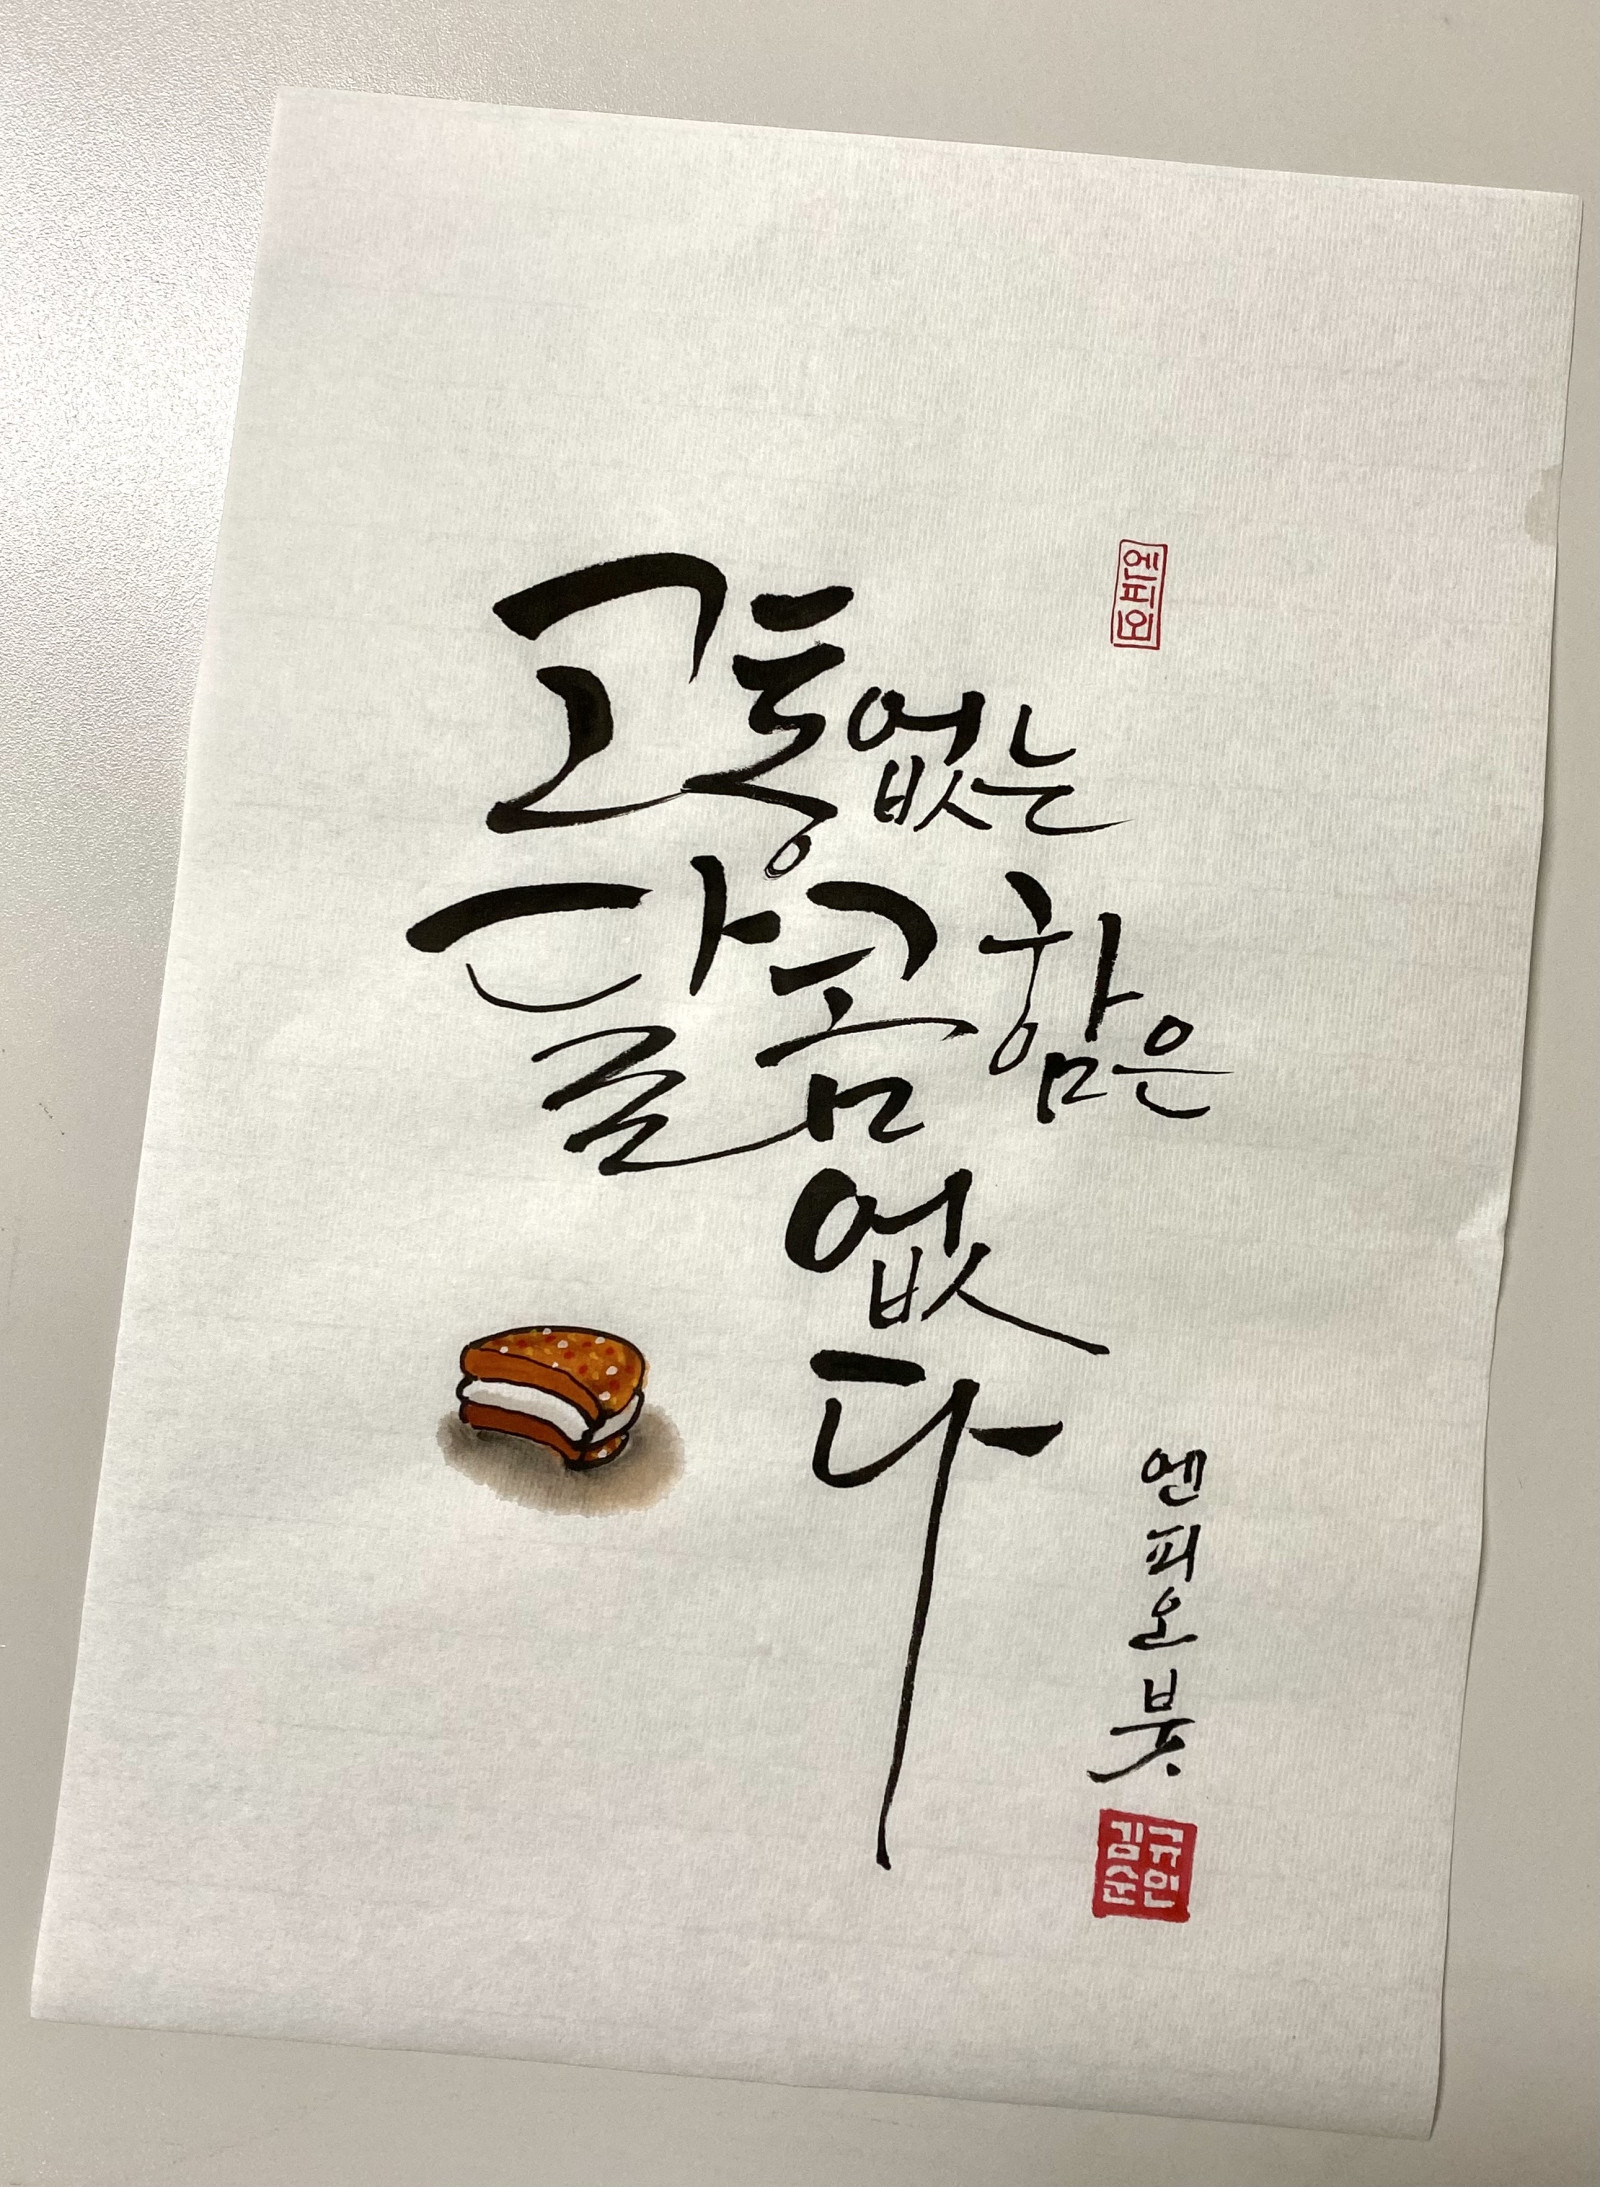 고통없는
달콤함은
없
다
엔피오
엔피오붓
김규
순인